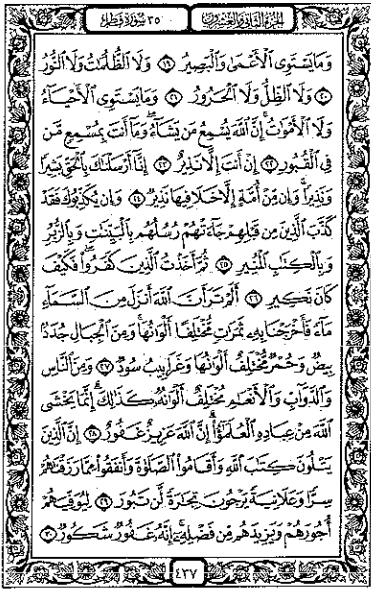 الجزء الثاني والعشرون
٣٥ سورة فاطر
وَمَا يَسْتَوِي الْأَعْمَىٰ وَالْبَصِيرُ ١٩ وَلَا الظُّلُمَاتُ وَلَا النُّورُ
٢٠ وَلَا الظِّلُّ وَلَا الْحَرُورُ ٢١ وَمَا يَسْتَوِي الْأَحْيَاءُ
وَلَا الْأَمْوَاتُ إِنَّ اللَّهَ يُسْمِعُ مَن يَشَاءُ وَمَا أَنتَ بِمُسْمِعٍ مَّن
فِي الْقُبُورِ ٢٢ إِنْ أَنتَ إِلَّا نَذِيرٌ ٢٣ إِنَّا أَرْسَلْنَاكَ بِالْحَقِّ بَشِيرًا
وَنَذِيرًا وَإِن مِّنْ أُمَّةٍ إِلَّا خَلَا فِيهَا نَذِيرٌ ٢٤ وَإِن يُكَذِّبُوكَ فَقَدْ
كَذَّبَ الَّذِينَ مِن قَبْلِهِمْ جَاءَتْهُمْ رُسُلُهُم بِالْبَيِّنَاتِ وَبِالزُّبُرِ
وَبِالْكِتَابِ الْمُنِيرِ ٢٥ ثُمَّ أَخَذْتُ الَّذِينَ كَفَرُوا فَكَيْفَ
كَانَ نَكِيرِ ٢٦ أَلَمْ تَرَ أَنَّ اللَّهَ أَنزَلَ مِنَ السَّمَاءِ
مَاءً فَأَخْرَجْنَا بِهِ ثَمَرَاتٍ مُّخْتَلِفًا أَلْوَانُهَا وَمِنَ الْجِبَالِ جُدَدٌ
بِيضٌ وَحُمْرٌ مُّخْتَلِفٌ أَلْوَانُهَا وَغَرَابِيبُ سُودٌ ٢٧ وَمِنَ النَّاسِ
وَالدَّوَابِّ وَالْأَنْعَامِ مُخْتَلِفٌ أَلْوَانُهُ كَذَٰلِكَ إِنَّمَا يَخْشَى
اللَّهَ مِنْ عِبَادِهِ الْعُلَمَاءُ إِنَّ اللَّهَ عَزِيزٌ غَفُورٌ ٢٨ إِنَّ الَّذِينَ
يَتْلُونَ كِتَابَ اللَّهِ وَأَقَامُوا الصَّلَوٰةَ وَأَنفَقُوا مِمَّا رَزَقْنَاهُمْ
سِرًّا وَعَلَانِيَةً يَرْجُونَ تِجَارَةً لَّن تَبُورَ ٢٩ لِيُوَفِّيَهُمْ
أُجُورَهُمْ وَيَزِيدَهُم مِّن فَضْلِهِ إِنَّهُ غَفُورٌ شَكُورٌ ٣٠
٤٣٧